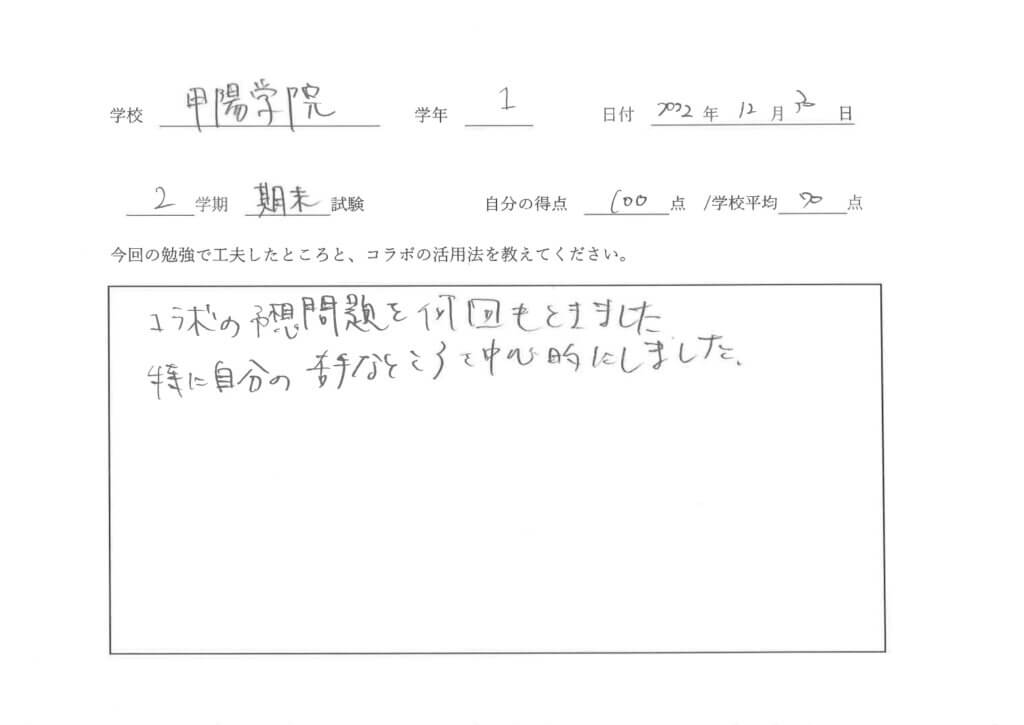 学校 甲陽学院 学年 1 日付 2022年 12月 日
2 学期 期末 試験 自分の得点 100 点 /学校平均 70 点
今回の勉強で工夫したところと、コラボの活用法を教えてください。
コラボの予想問題を何回もときました
特に自分の苦手なところを中心的にしました、